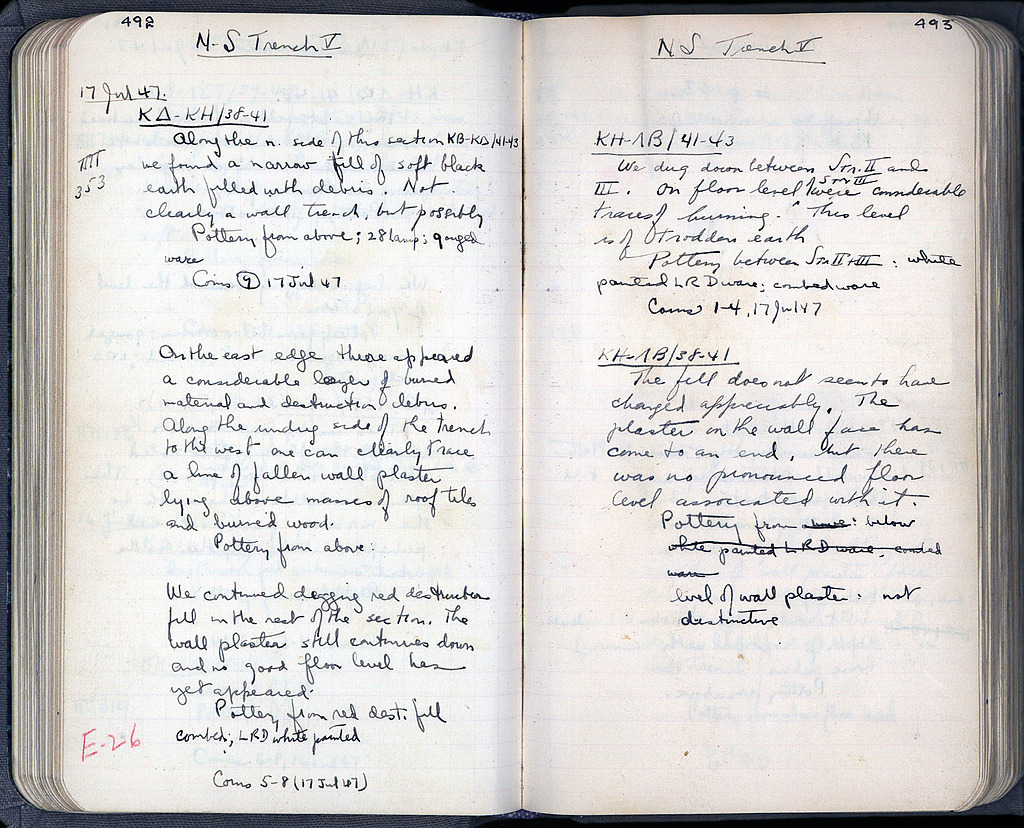 492
N-S Trench V
17 Jul 47.
KΔ-KH/38-41
Along the n. side of this section KB-KΔ/41-43
we found a narrow fill of soft black
III
353
earth filled with debris. Not
clearly a wall trench, but possibly
Pottery from above; 28 lamp; gouged
ware
Coins 9 17 Jul 47
On the east edge there appeared
a considerable layer of burned
material and destruction debris.
Along the side of the trench
to the west one can clearly trace
a line of fallen wall plaster
lying above masses of roof tiles
and burned wood.
Pottery from above.
We continued digging red destruction
fill in the rest of the section. The
wall plaster still continues down
and no good floor level has
yet appeared.
Pottery from red dest. fill
combed; LRD white painted
E-26
Coins 5-8 (17 Jul 47)
493
NS Trench V
KH-ΛB/41-43
We dug down between Str. II and
III. On floor level of Str III were considerable
traces of burning. This level
is of trodden earth
Pottery between Str II + III : white
painted LRD ware; combed ware
Coins 1-4, 17 Jul 47
KH-ΛB/38-41
The fill does not seem to have
changed appreciably. The
plaster on the wall face has
come to an end, but there
was no pronounced floor
level associated with it.
Pottery from : below
white painted LRD ware, combed
ware
level of wall plaster : not
distinctive